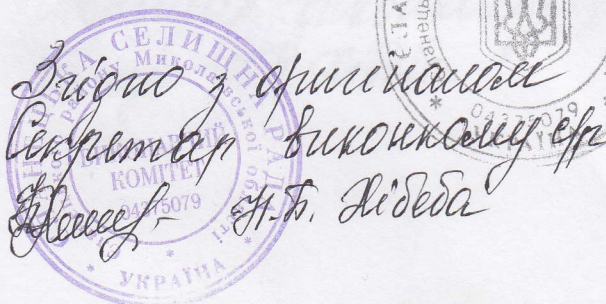 Згідно з оригіналом
Секретар виконкому с/р
Н.Б. Хібеба
СЕЛИЩНА РАДА
Миколаївської області
КОМІТЕТ
04375079
* УКРАЇНА *
04375079